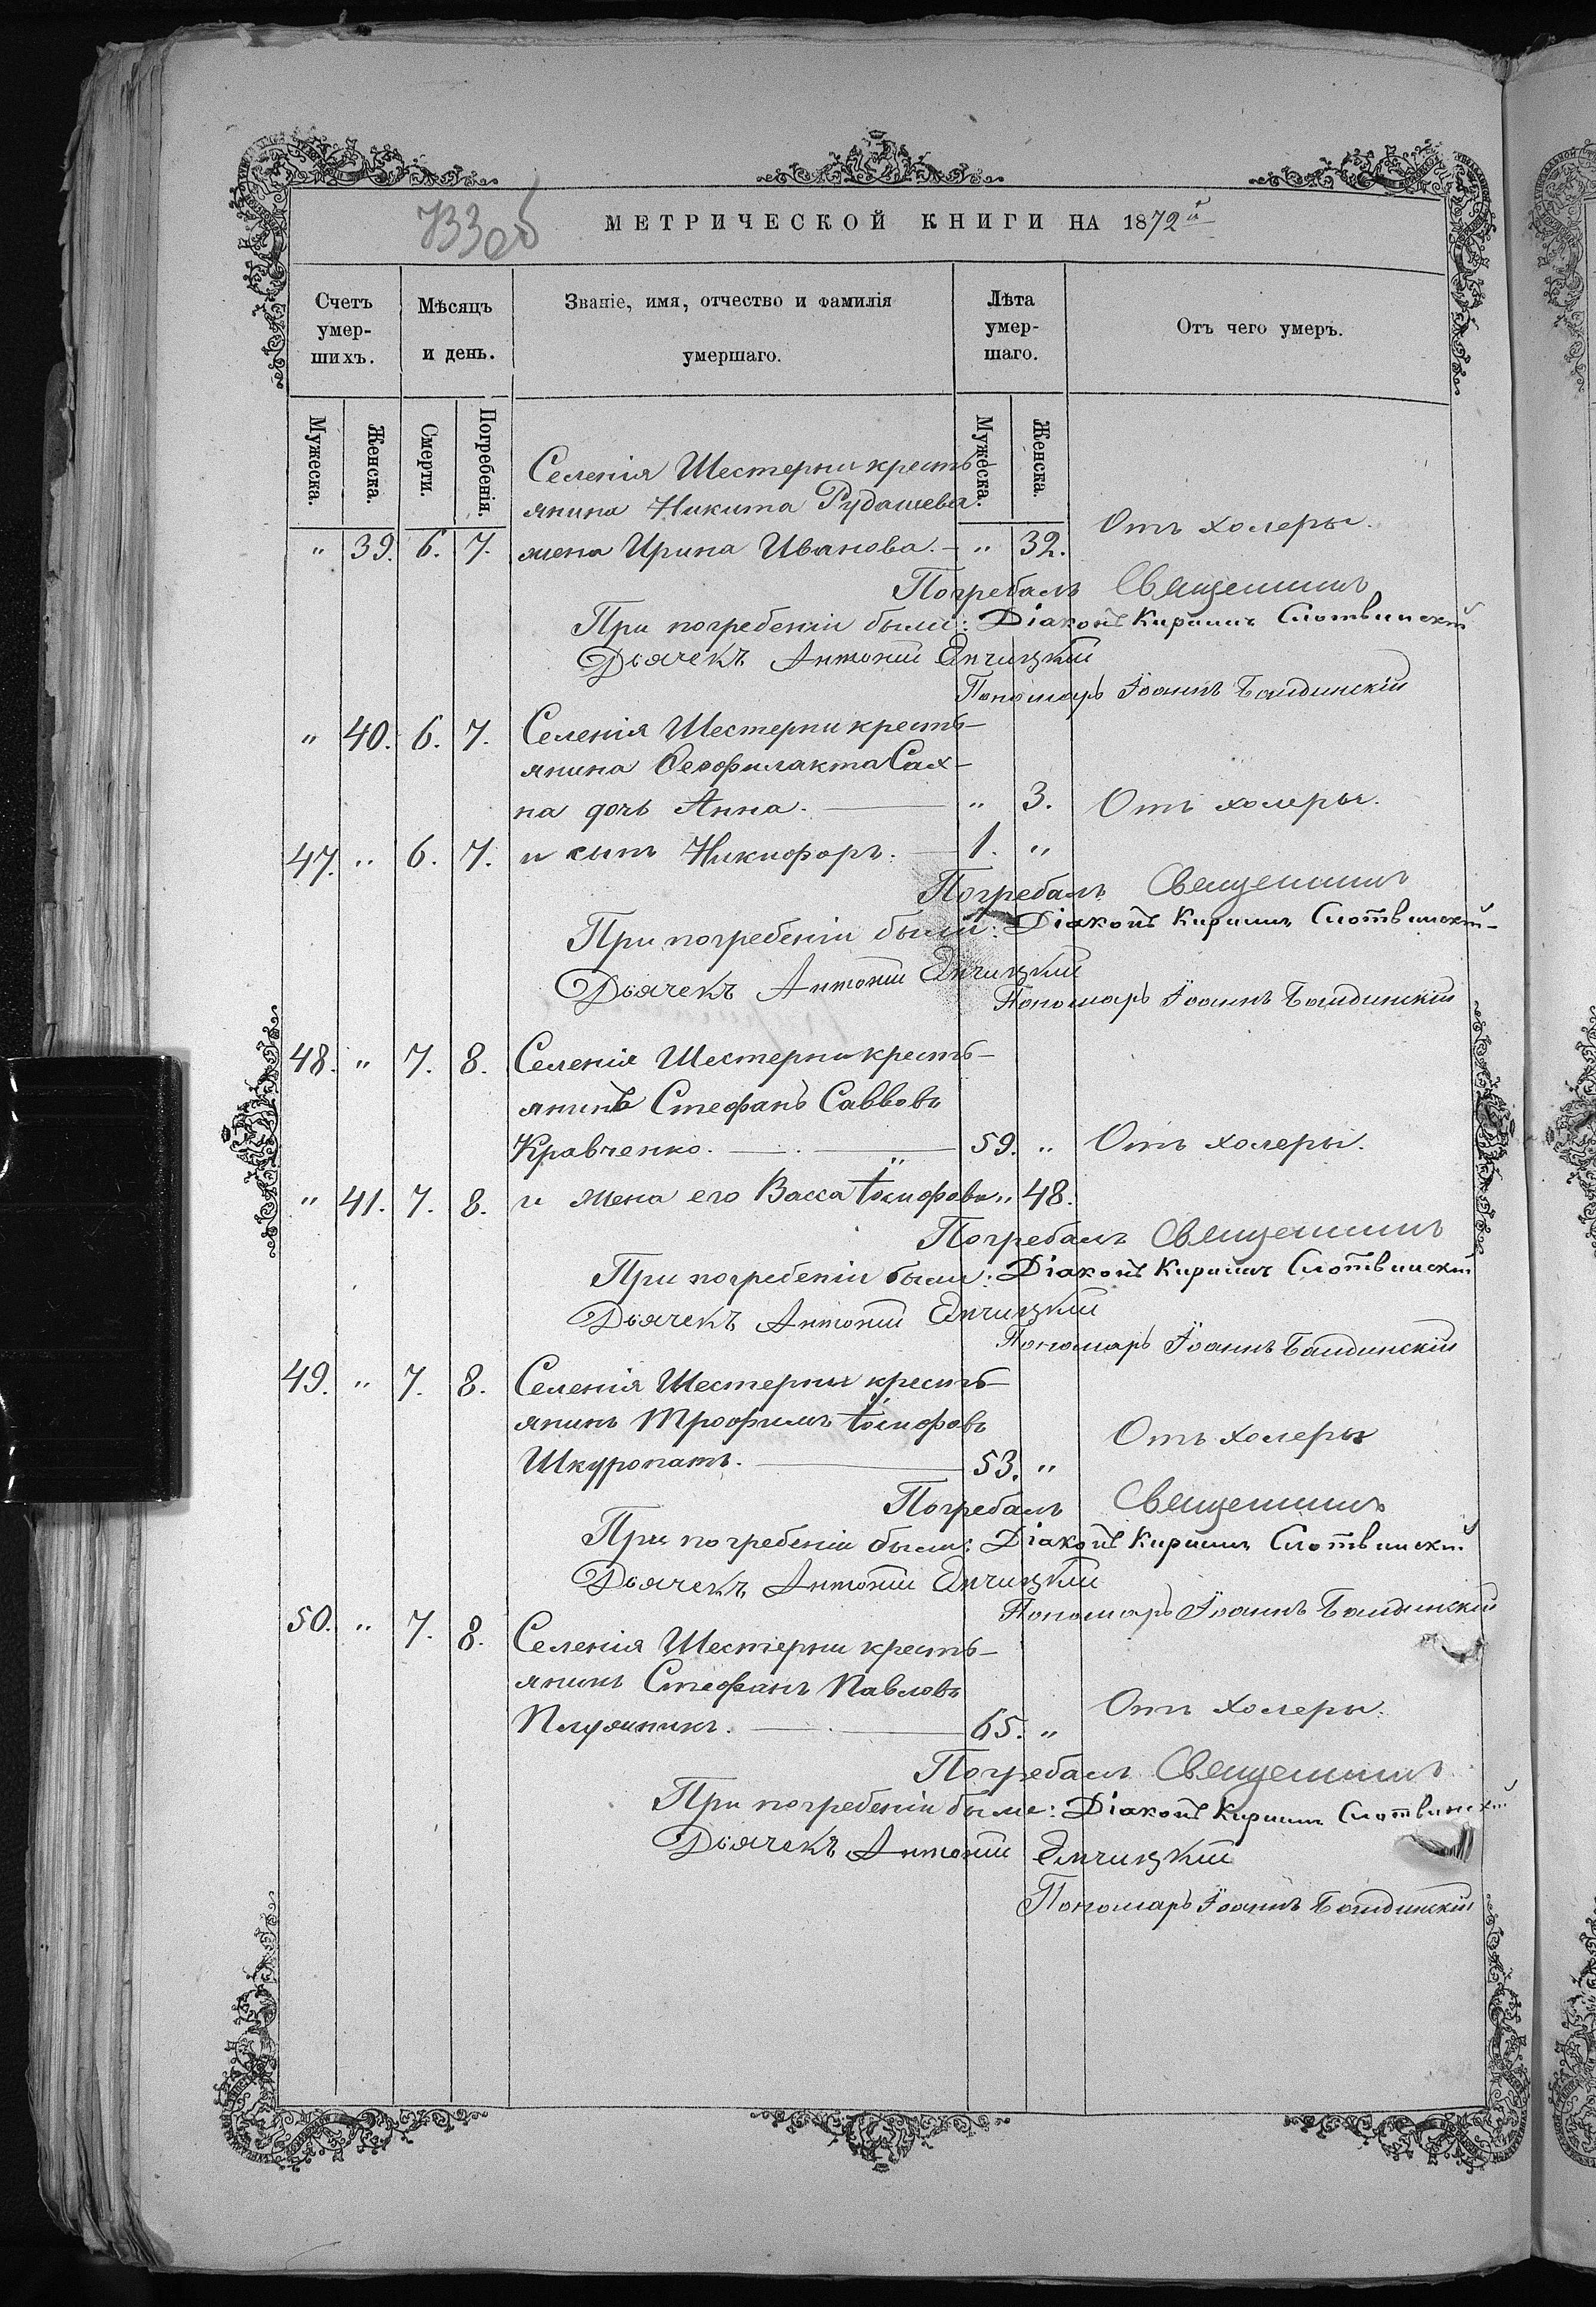 733об
МЕТРИЧЕСКОЙ КНИГИ НА 1872й
Счетъ умер-шихъ.
Мѣсяцъ и день.
Званіе, имя, отчество и фамилія умершаго.
Лѣта умер-шаго.
Отъ чего умеръ.
Мужеска. Женска. Смерти. Погребенія. Мужеска. Женска.
Селенія Шестерни кресть-
янина Никита Рудашева
" 39. 6. 7. жена Ирина Иванова. — " 32. Отъ холеры.
Погребалъ Священникъ
При погребеніи были: Діаконъ Кириллъ Слотвинскій
Дьячекъ Антоній
Пономарь Іоаннъ
" 40. 6. 7. Селенія Шестерни кресть-
янина Феофилакта Сах-
на дочь Анна. — " 3. Отъ холеры.
47. " 6. 7. и сынъ Никифоръ. — 1. "
Погребалъ Священникъ
При погребеніи были: Діаконъ Кириллъ Слотвинскій
Дьячекъ Антоній
Пономарь Іоаннъ
48. " 7. 8. Селенія Шестерни кресть-
янинъ Стефанъ Саввовъ
Кравченко. — 59. " Отъ холеры.
" 41. 7. 8. и жена его Васса Іосифова " 48.
Погребалъ Священникъ
При погребеніи были: Діаконъ Кириллъ Слотвинскій
Дьячекъ Антоній
Пономарь Іоаннъ
49. " 7. 8. Селенія Шестерни кресть-
янинъ Трофимъ Іосифовъ
Шкуропатъ. — 53. " Отъ холеры
Погребалъ Священникъ
При погребеніи были: Діаконъ Кириллъ Слотвинскій
Дьячекъ Антоній
Пономарь Іоаннъ
50. " 7. 8. Селенія Шестерни кресть-
янинъ Стефанъ Павловъ
Плужникъ. — 65. " Отъ холеры.
Погребалъ Священникъ
При погребеніи были: Діаконъ Кириллъ Слотвинскій
Дьячекъ Антоній
Пономарь Іоаннъ